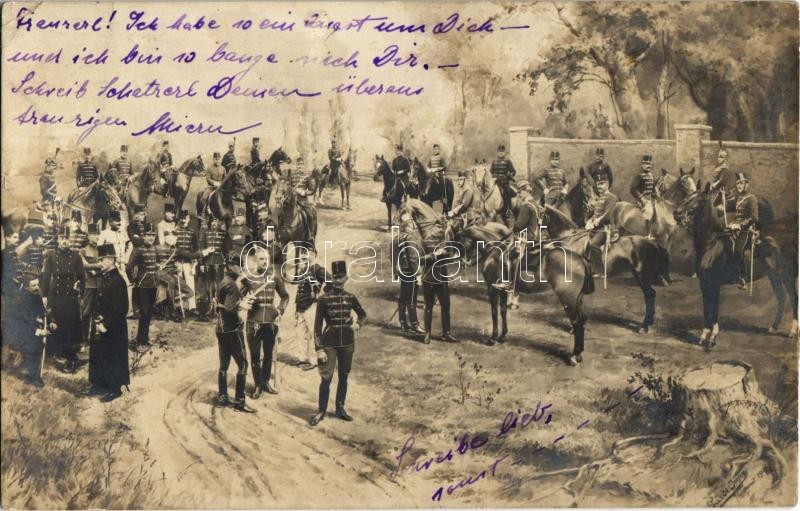 Franzerl! Ich habe so ein Angst um Dich –
und ich bin so bange nach Dir. –
Schreib Schatzerl Deinen überaus
traurigen
darabanth.com
Schreibe lieb,
sonst – – – – – –